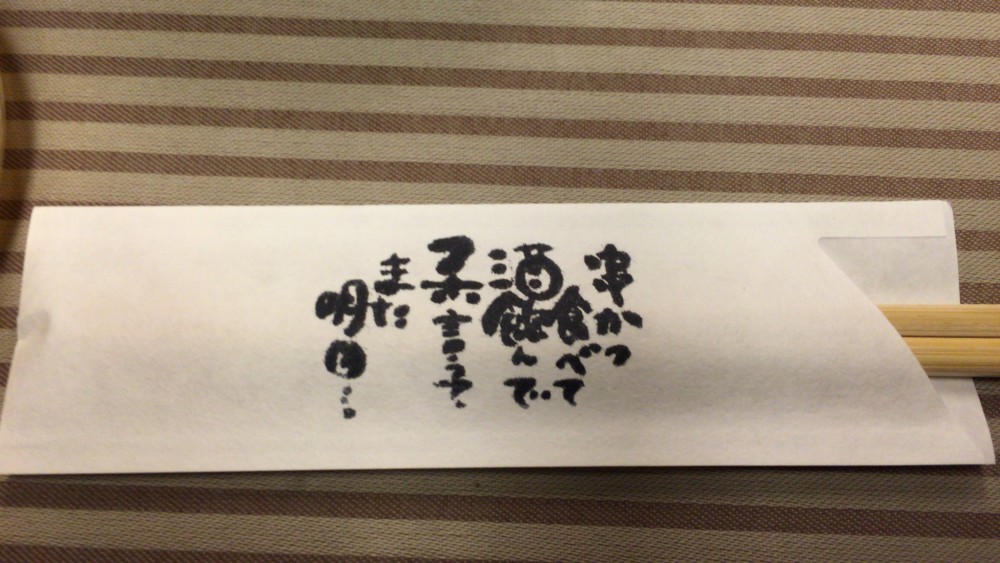 串かつ
食べて
酒
飲んで
また
明日…